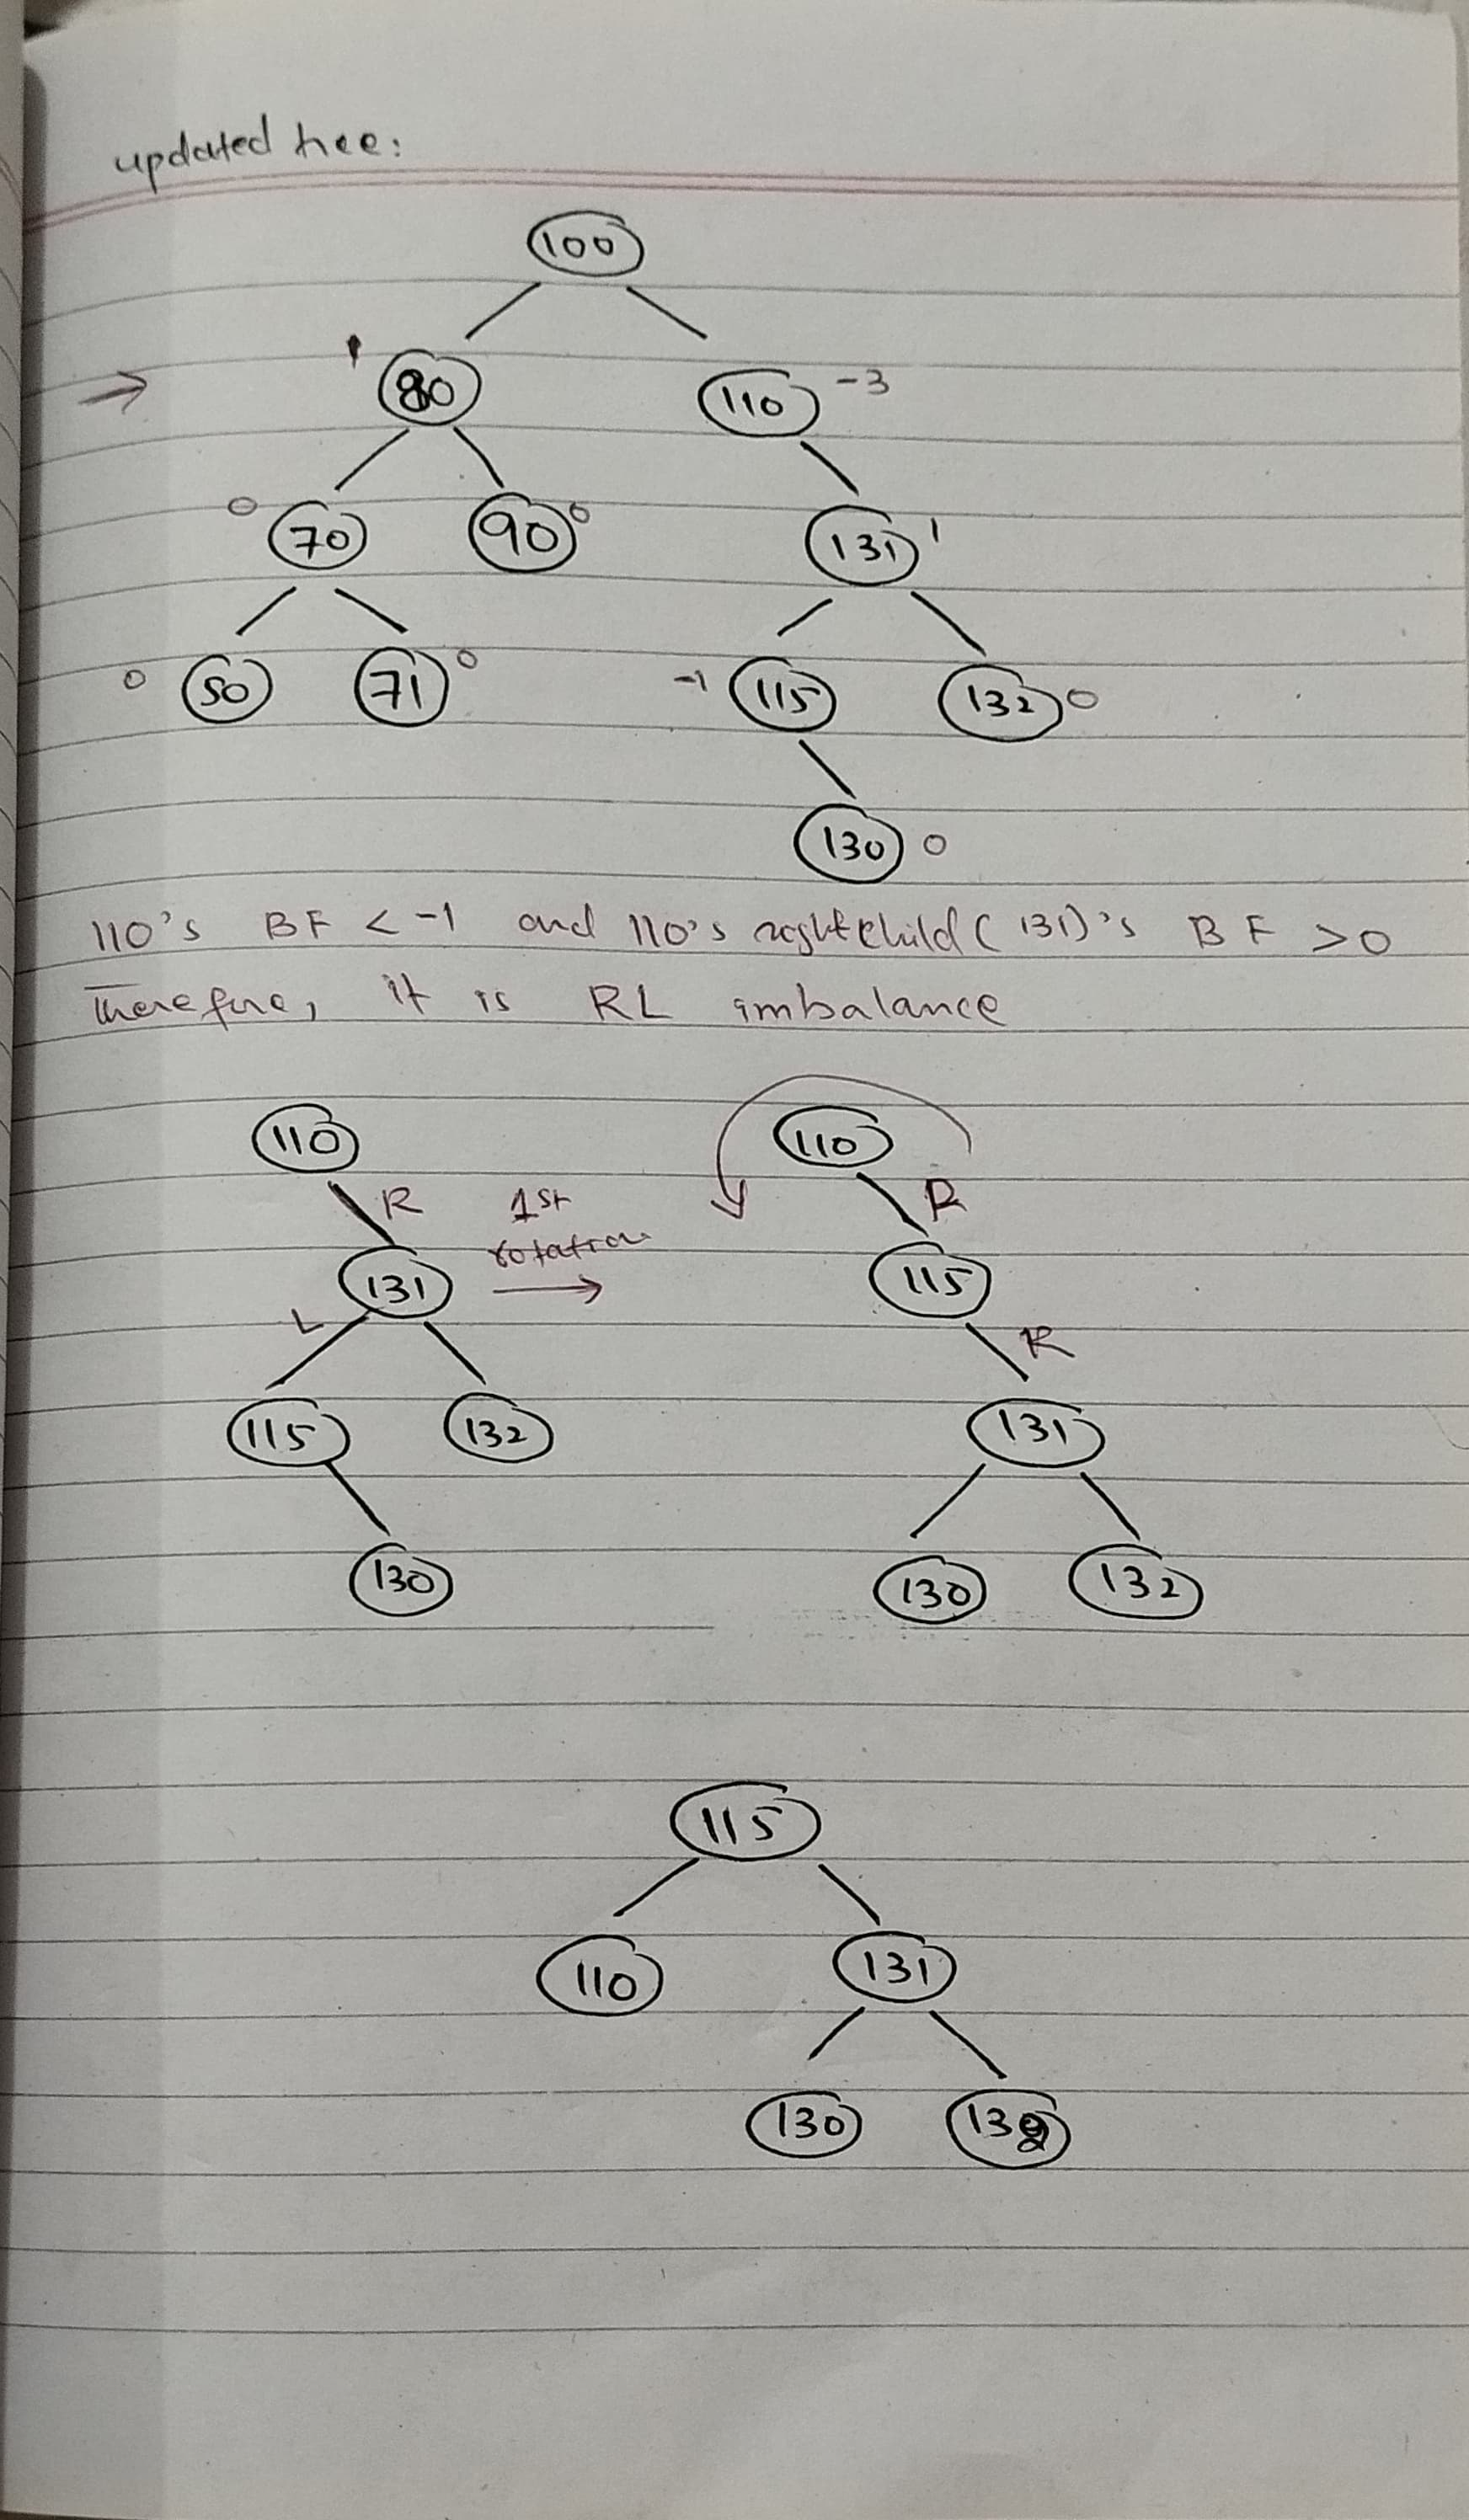 updated tree:
100
→ 80 110 -3
0 70 90 0 131 1
0 50 71 0 -1 115 132 0
130 0
110's BF < -1 and 110's right child (131)'s BF >0
Therefore, it is RL imbalance
110 110
R 1st R
rotation
131 → 115
L R
115 132 131
130 130 132
115
110 131
130 132